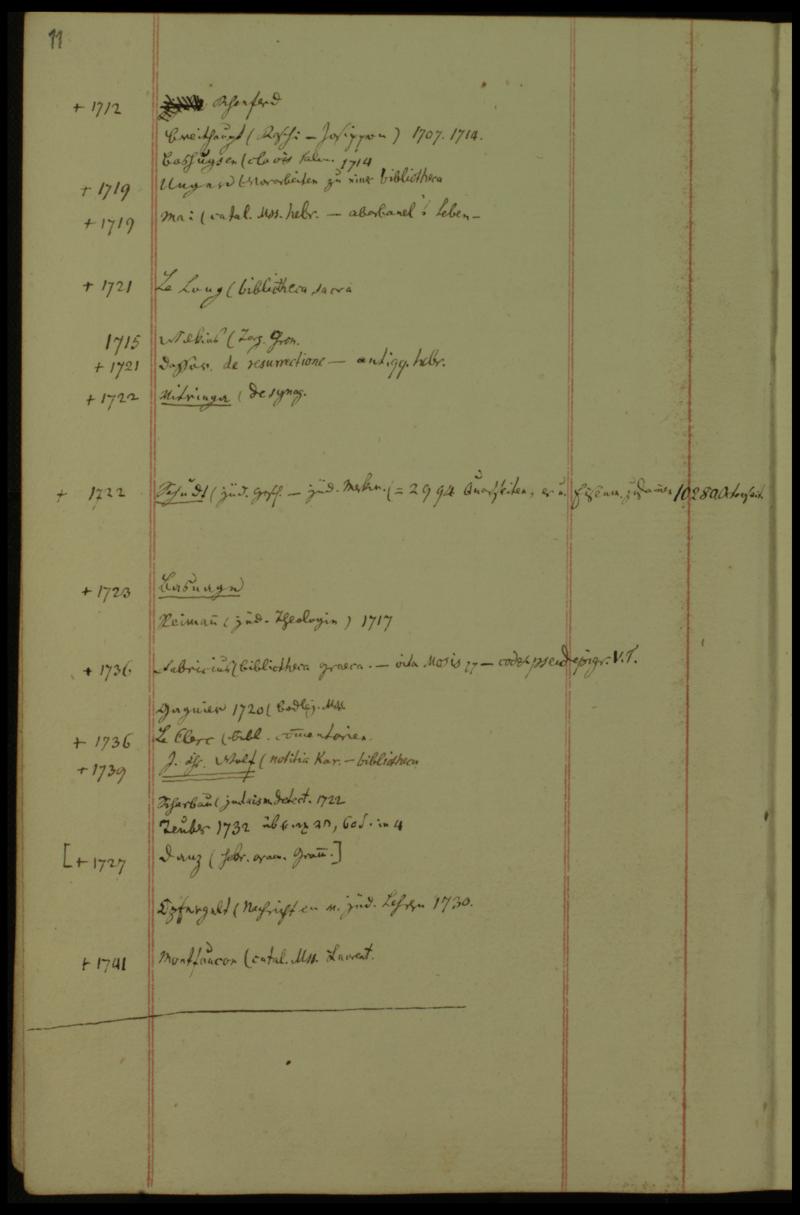 11
+ 1712 Rhenferd
Breithaupt (Raschi – Josippon) 1707. 1714.
Bashuysen (clavis talm. 1714
+ 1719 Unger (Vorarbeiten zu einer bibliotheca
+ 1719 Mai (catal. Mss. hebr. – abarbanel's Leben –
+ 1721 Le Long (bibliotheca sacra
1715
+ 1721 de resurrectione – antiqq. hebr.
+ 1722 Vitringa (de synag.
+ 1722 Schudt (jüd. Gesch. – jüd. Merkw. (= 2994 Quartseiten, er u. Eisenm. zusammen 10280 Octavseit.
+ 1723 Basnage
Reimañ (jüd. Theologie) 1717
+ 1736 Fabricius (bibliotheca graeca. – vita Mosis – codex pseudepigr. V.T.
Gagnier 1720 (Bodlej. Mss.
+ 1736 Le Clerc (bibl. com̄entarien.
+ 1739 J. Chr. Wolf (notitia Kar. – bibliotheca
Scharbau (judaism. detect. 1722
Teuber 1732 in 4
[+ 1727 Danz (hebr. aram. Gram̄.]
Opfergelt (Nachrichten v. jüd. Lehren 1730.
+ 1741 Montfaucon (catal. Mss. Laurent.